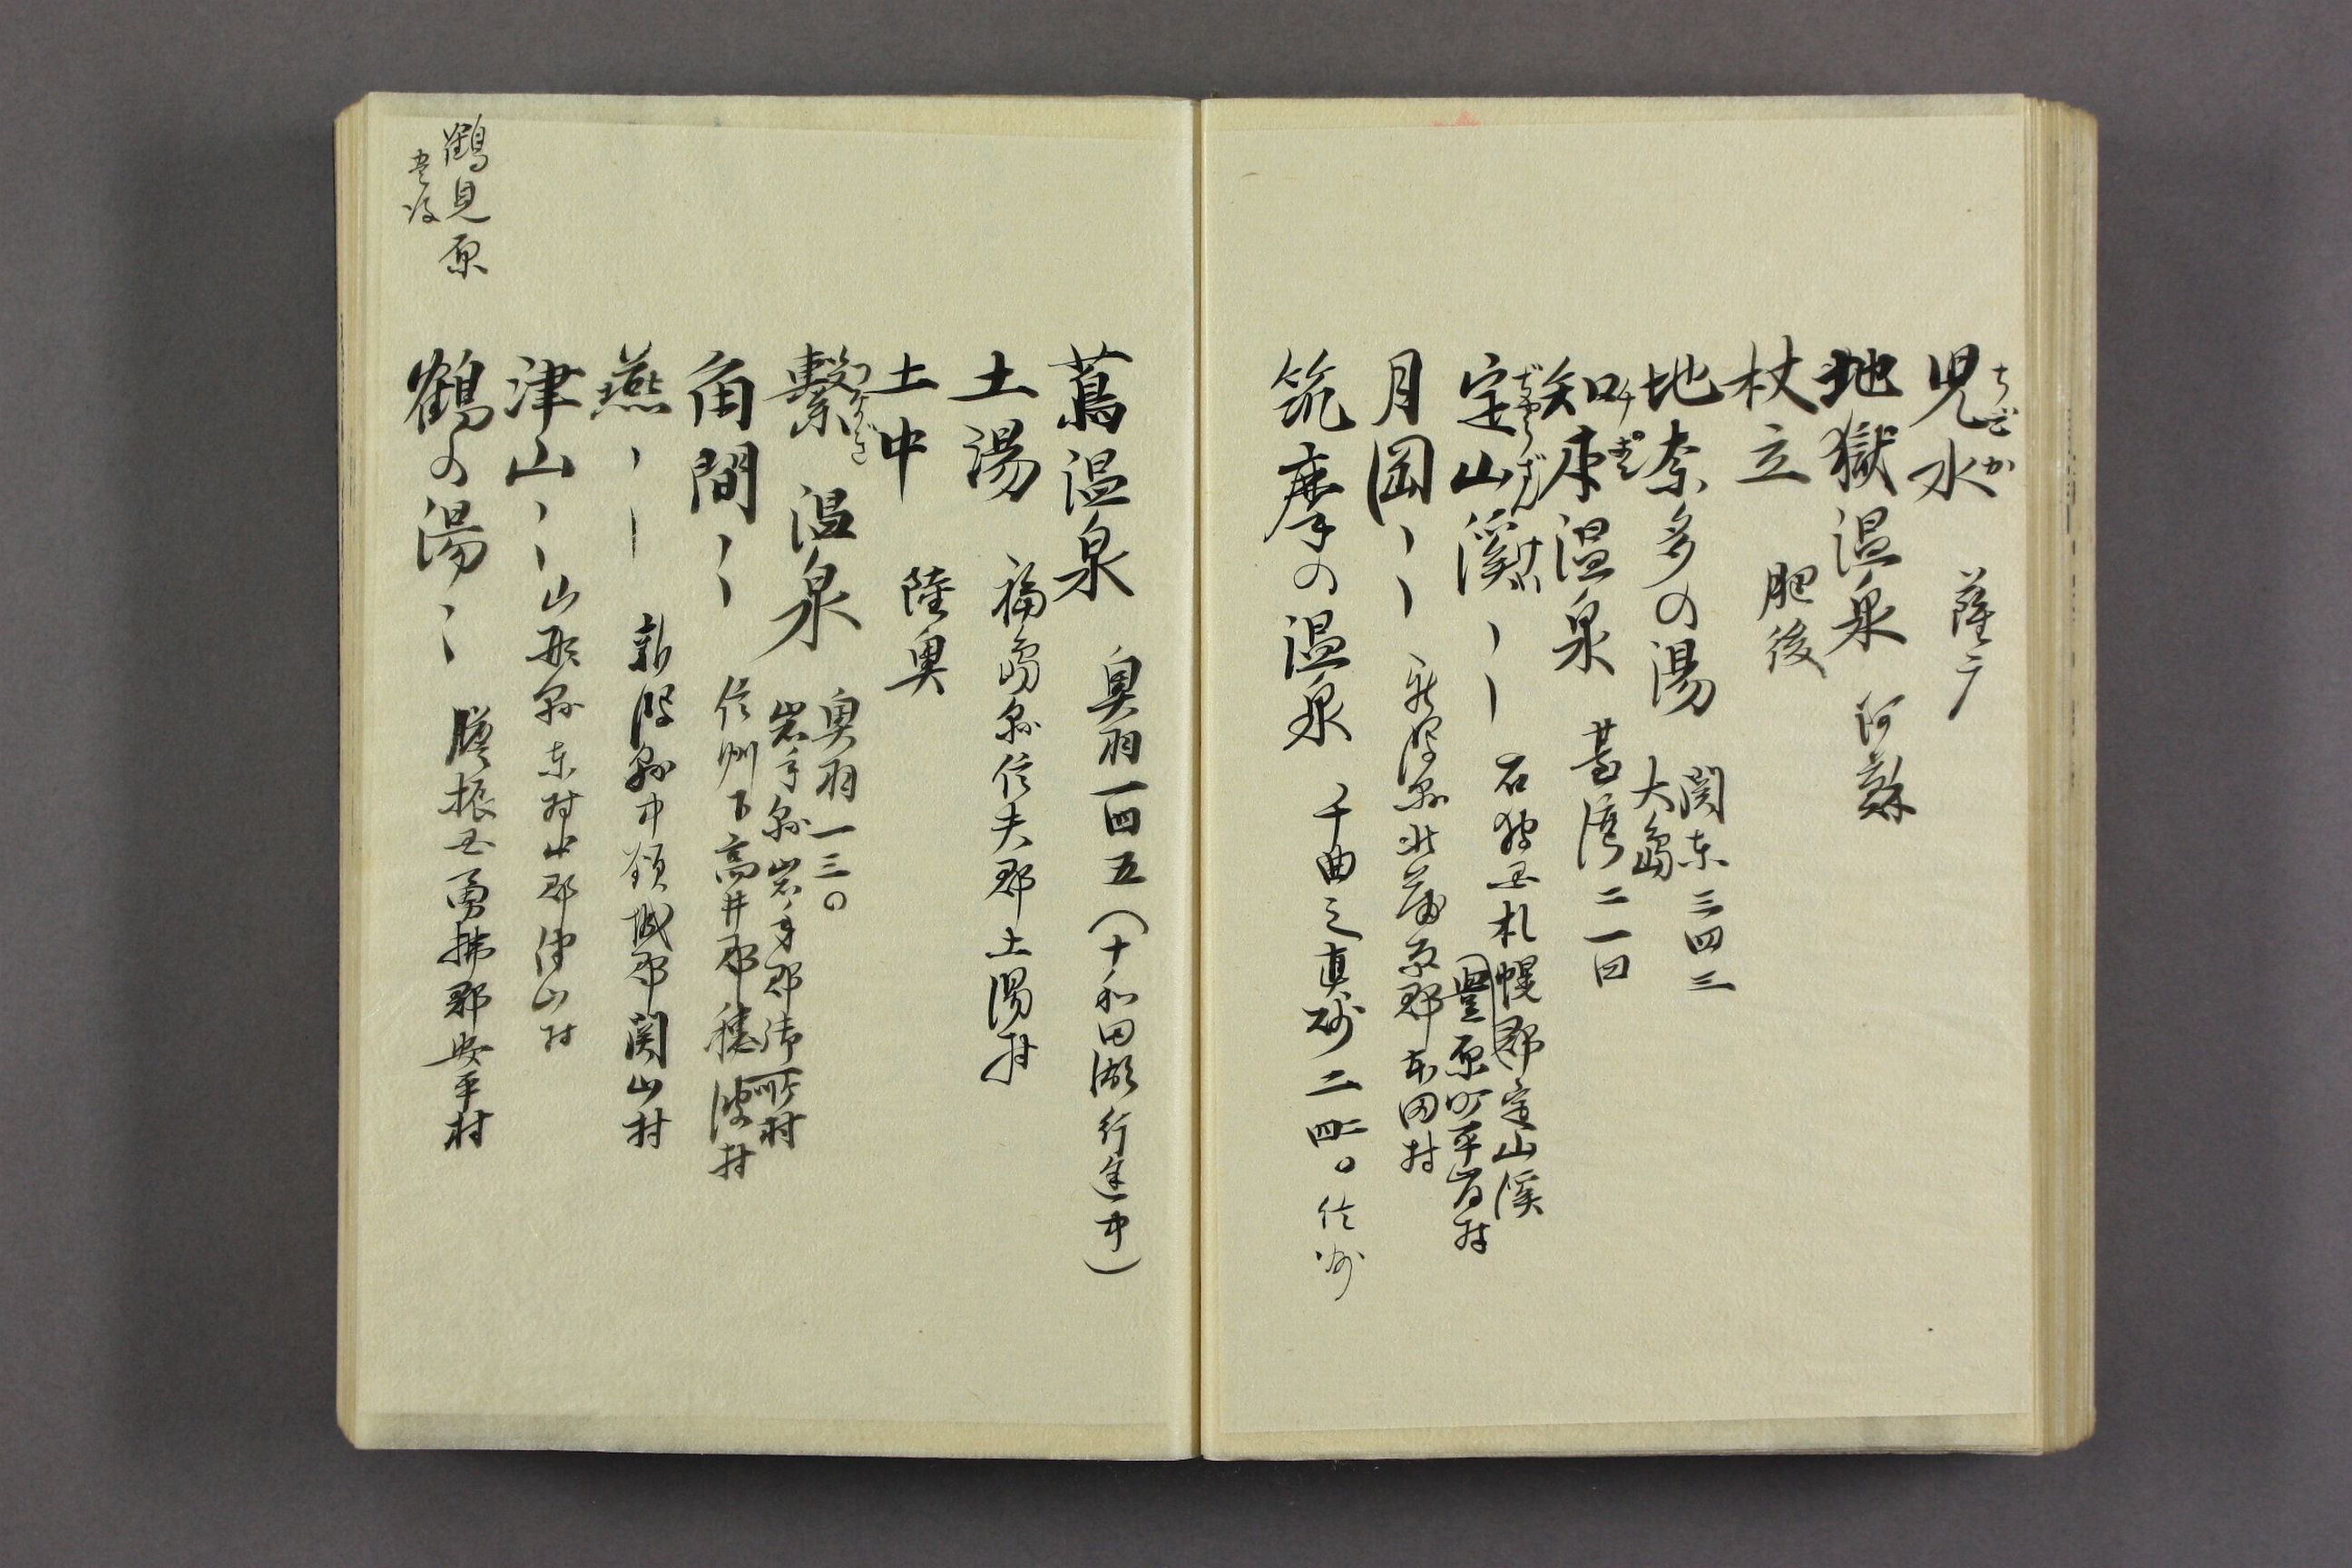 児水 ちごか 薩广
地獄温泉 阿蘇
杖立 肥後
地奈多の湯 関東三四三
大島
知本温泉 チポン 臺湾二一四
定山溪〻〻 ぢやうざんけい 石狩国札幌郡定山溪
豐原町平岸村
月岡〻〻 新潟縣北蒲原郡本田村
筑摩の温泉 千曲之真砂二ノ四〇 信州
蔦温泉 奥羽一四五(十和田湖行途中)
土湯 福島縣信夫郡土湯村
土中 陸奥
繋温泉 つなぎ 奥羽一三〇
岩手縣岩手郡御所村
角間〻〻 信州下高井郡穂波村
燕〻〻 新潟縣中頚城郡関山村
津山〻〻 山形縣東村山郡津山村
鶴の湯〻〻 膽振国勇拂郡安平村
鶴見原
豊後